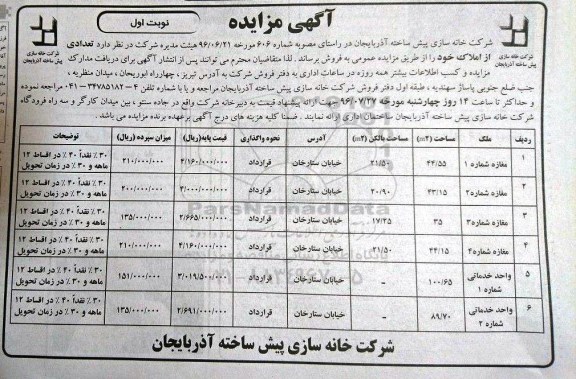 آگهی مزایده
نوبت اول
شرکت خانه سازی پیش ساخته آذربایجان
شرکت خانه سازی پیش ساخته آذربایجان در راستای مصوبه شماره ۶۰۶ مورخه ۹۶/۰۶/۲۱ هیئت مدیره شرکت در نظر دارد تعدادی
از املاک خود را از طریق مزایده عمومی به فروش برساند. لذا متقاضیان محترم می توانند پس از انتشار آگهی برای دریافت مدارک
مزایده و کسب اطلاعات بیشتر همه روزه در ساعات اداری به دفتر فروش شرکت به آدرس تبریز، چهارراه ابوریحان، میدان منظریه ،
جنب ضلع جنوبی پاساژ سهندیه ، طبقه اول دفتر فروش شرکت خانه سازی پیش ساخته آذربایجان مراجعه و یا با شماره تلفن ۴ – ۳۴۷۸۵۱۸۲ – ۰۴۱ مراجعه نموده
و حداکثر تا ساعت ۱۴ روز چهارشنبه مورخه ۹۶/۰۷/۲۷ جهت ارائه پیشنهاد قیمت به دبیرخانه شرکت واقع در جاده سنتو ، بین میدان کارگر و سه راه فرودگاه
شرکت خانه سازی پیش ساخته آذربایجان ساختمان اداری ارائه نمایند. ضمنا کلیه هزینه های درج آگهی برعهده برنده مزایده می باشد.
ردیف ملک مساحت (m2) مساحت بالکن (m2) آدرس نحوه واگذاری قیمت پایه(ریال) میزان سپرده (ریال) توضیحات
۱ مغازه شماره ۱ ۴۴/۵۵ ۲۱/۵۰ خیابان ستارخان قرارداد ۴/۱۶۰/۰۰۰/۰۰۰ ۲۱۰/۰۰۰/۰۰۰ ۳۰ ٪ نقداً ۴۰ ٪ در اقساط ۱۲ ماهه و ۳۰ ٪ در زمان تحویل
۲ مغازه شماره ۲ ۴۳/۱۵ ۲۰/۹۰ خیابان ستارخان قرارداد ۴/۰۰۰/۰۰۰/۰۰۰ ۲۰۰/۰۰۰/۰۰۰ ۳۰ ٪ نقداً ۴۰ ٪ در اقساط ۱۲ ماهه و ۳۰ ٪ در زمان تحویل
۳ مغازه شماره۳ ۳۵ ۱۷/۲۵ خیابان ستارخان قرارداد ۲/۶۶۵/۰۰۰/۰۰۰ ۱۳۵/۰۰۰/۰۰۰ ۳۰ ٪ نقداً ۴۰ ٪ در اقساط ۱۲ ماهه و ۳۰ ٪ در زمان تحویل
۴ مغازه شماره۴ ۴۴/۱۵ ۲۱/۵۰ خیابان ستارخان قرارداد ۴/۱۶۰/۰۰۰/۰۰۰ ۲۱۰/۰۰۰/۰۰۰ ۳۰ ٪ نقداً ۴۰ ٪ در اقساط ۱۲ ماهه و ۳۰ ٪ در زمان تحویل
۵ واحد خدماتی شماره ۱ ۱۰۰/۶۵ – خیابان ستارخان قرارداد ۳/۰۱۹/۵۰۰/۰۰۰ ۱۵۱/۰۰۰/۰۰۰ ۳۰ ٪ نقداً ۴۰ ٪ در اقساط ۱۲ ماهه و ۳۰ ٪ در زمان تحویل
۶ واحد خدماتی شماره ۲ ۸۹/۷۰ – خیابان ستارخان قرارداد ۲/۶۹۱/۰۰۰/۰۰۰ ۱۳۵/۰۰۰/۰۰۰ ۳۰ ٪ نقداً ۴۰ ٪ در اقساط ۱۲ ماهه و ۳۰ ٪ در زمان تحویل
ParsNamadData
شرکت خانه سازی پیش ساخته آذربایجان